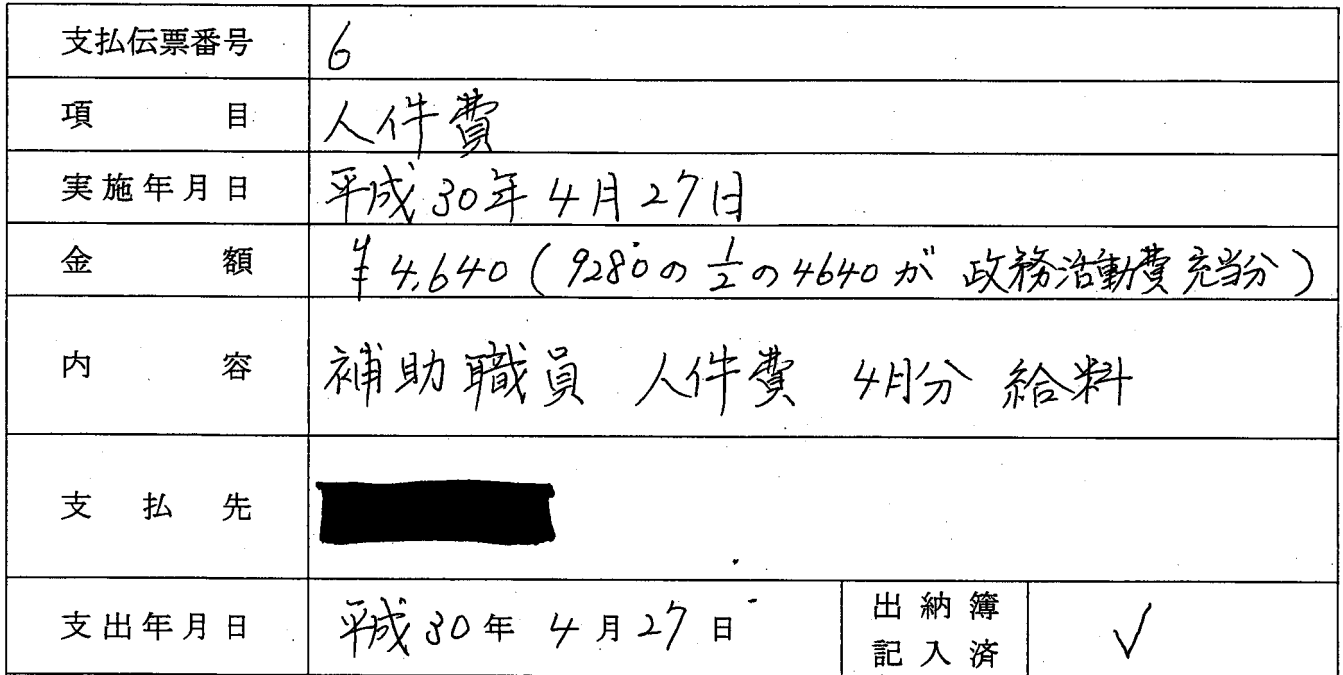 支払伝票番号 6
項目 人件費
実施年月日 平成30年4月27日
金額 ¥4,640(9280の1/2の4640が政務活動費充当分)
内容 補助職員 人件費 4月分 給料
支払先
支出年月日 平成30年4月27日 出納簿記入済 ✓